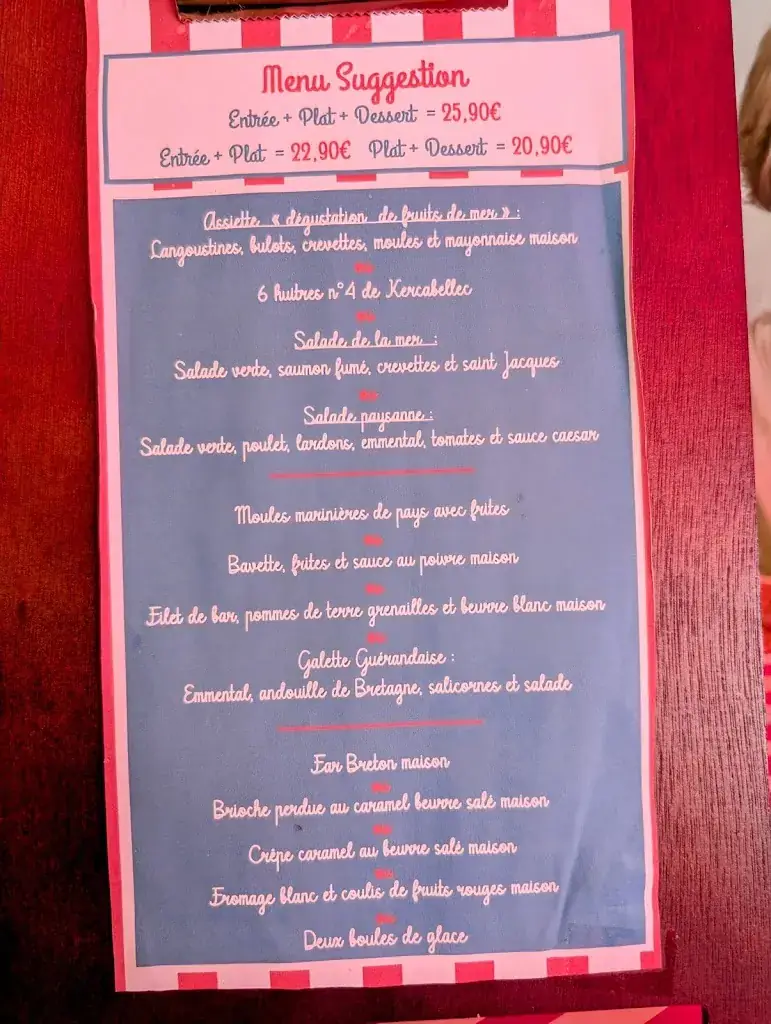 Menu Suggestion
Entrée + Plat + Dessert = 25,90€
Entrée + Plat = 22,90€ Plat + Dessert = 20,90€
Assiette « dégustation de fruits de mer » :
Langoustines, bulots, crevettes, moules et mayonnaise maison
ou
6 huitres n°4 de Kercabellec
ou
Salade de la mer :
Salade verte, saumon fumé, crevettes et saint Jacques
ou
Salade paysanne :
Salade verte, poulet, lardons, emmental, tomates et sauce caesar
Moules marinières de pays avec frites
ou
Bavette, frites et sauce au poivre maison
ou
Filet de bar, pommes de terre grenailles et beurre blanc maison
ou
Galette Guérandaise :
Emmental, andouille de Bretagne, salicornes et salade
Far Breton maison
ou
Brioche perdue au caramel beurre salé maison
ou
Crêpe caramel au beurre salé maison
ou
Fromage blanc et coulis de fruits rouges maison
ou
Deux boules de glace